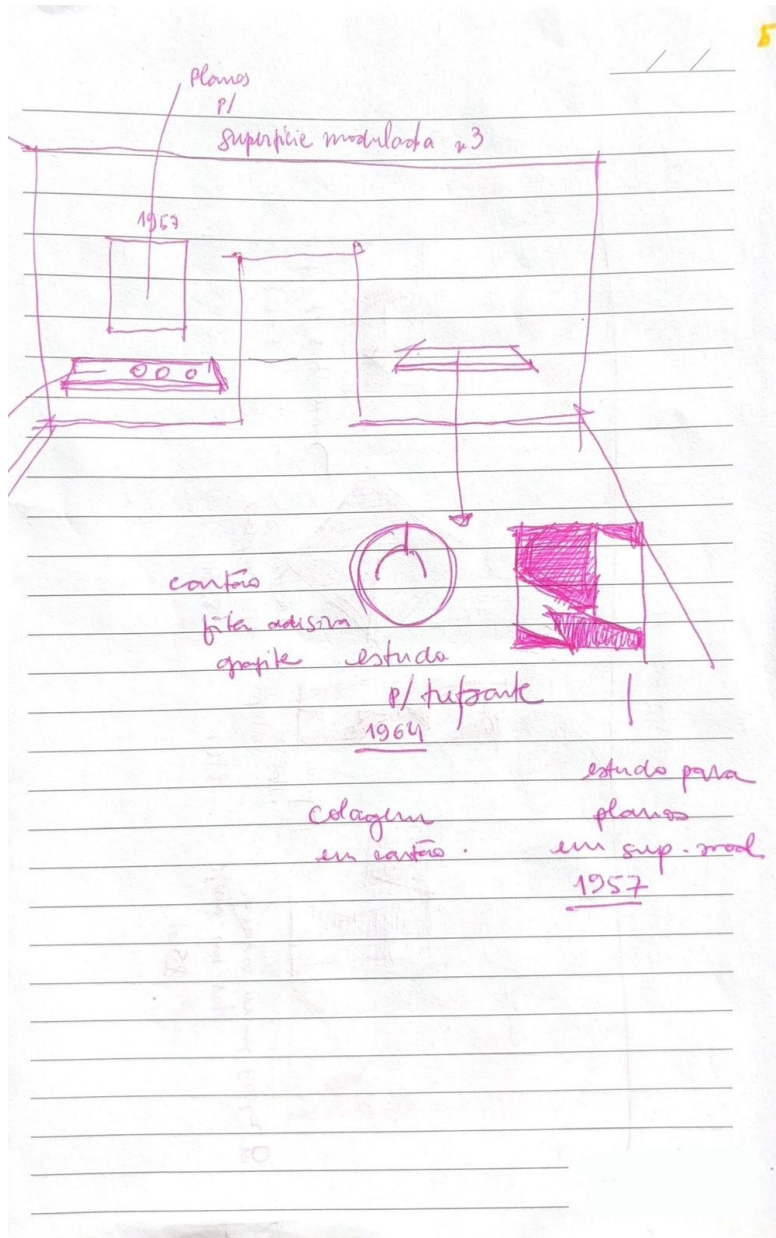 5
Planos
p/
superfície modulada n3
1957
cartão
fita adesiva
grafite
estudo
p/ trepante
1964
colagem
em cartão.
estudo para
planos
em sup. mod.
1957